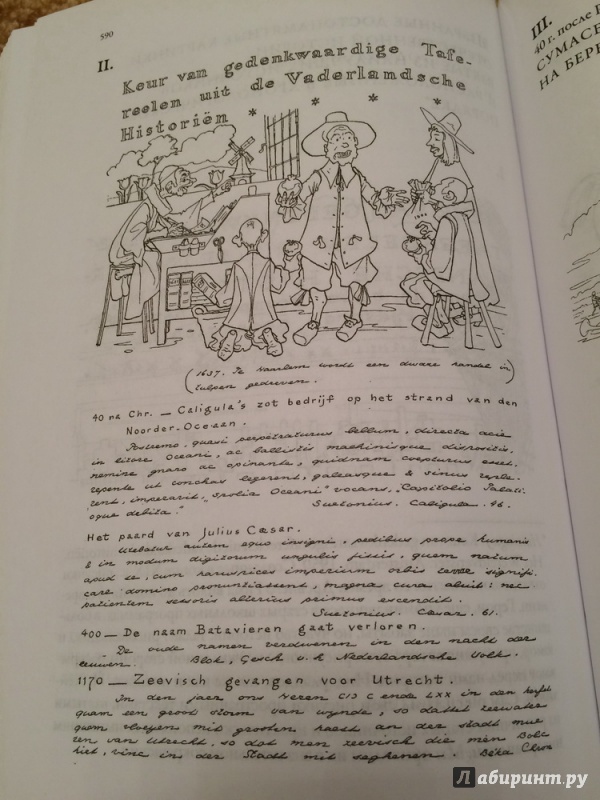 590
II.
Keur van gedenkwaardige Tafe-
reelen uit de Vaderlandsche
Historiën
III.
40 г. после
СУМАСБ
НА БЕРЕ
(1637. Te Haarlem wordt een dwaze handel in
tulpen gedreven.)
40 na Chr. — Caligula's zot bedrijf op het strand van den
Noorder-Oceaan.
Postremo quasi perpetraturus bellum, directa acie
in litore Oceani, ac ballistis machinisque dispositis,
nemine gnaro ac opinante, quidnam coepturus esset,
repente ut conchas legerent, galeasque & sinus reple-
rent, imperavit, "spolia Oceani" vocans, "Capitolio Palati-
oque debita."
Suetonius. Caligula. 46.
Het paard van Julius Cæsar.
Utebatur autem equo insigni, pedibus prope humanis
& in modum digitorum ungulis fissis, quem natum
apud se, cum haruspices imperium orbis terræ signifi-
care domino pronuntiassent, magna cura aluit: nec
patientem sessoris alterius primus escendit.
Suetonius. Cæsar. 61.
400 — De naam Batavieren gaat verloren.
De oude namen verdwenen in den nacht der
eeuwen. Blok, Gesch. v. h. Nederlandsche Volk.
1170 — Zeevisch gevangen voor Utrecht.
In den jaer ons Heren CIƆ C ende LXX in den herfst
quam een groot storm van wynde, so dattet zeewater
quam vloeyen mit grooten haest an der stadt mue
ren van Utrecht, so dat men zeevisch die men Bolc
hiet, vinc in der Stadt mit seghenen. Beka Chron
Лабиринт.ру